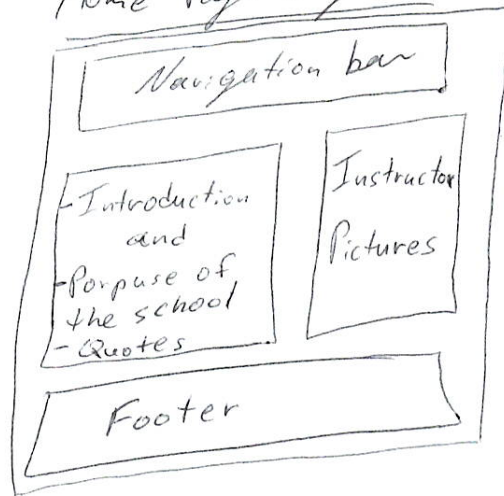 Home
Navigation bar
- Introduction
and
- Porpuse of
the school
- Quotes
Instructor
Pictures
Footer